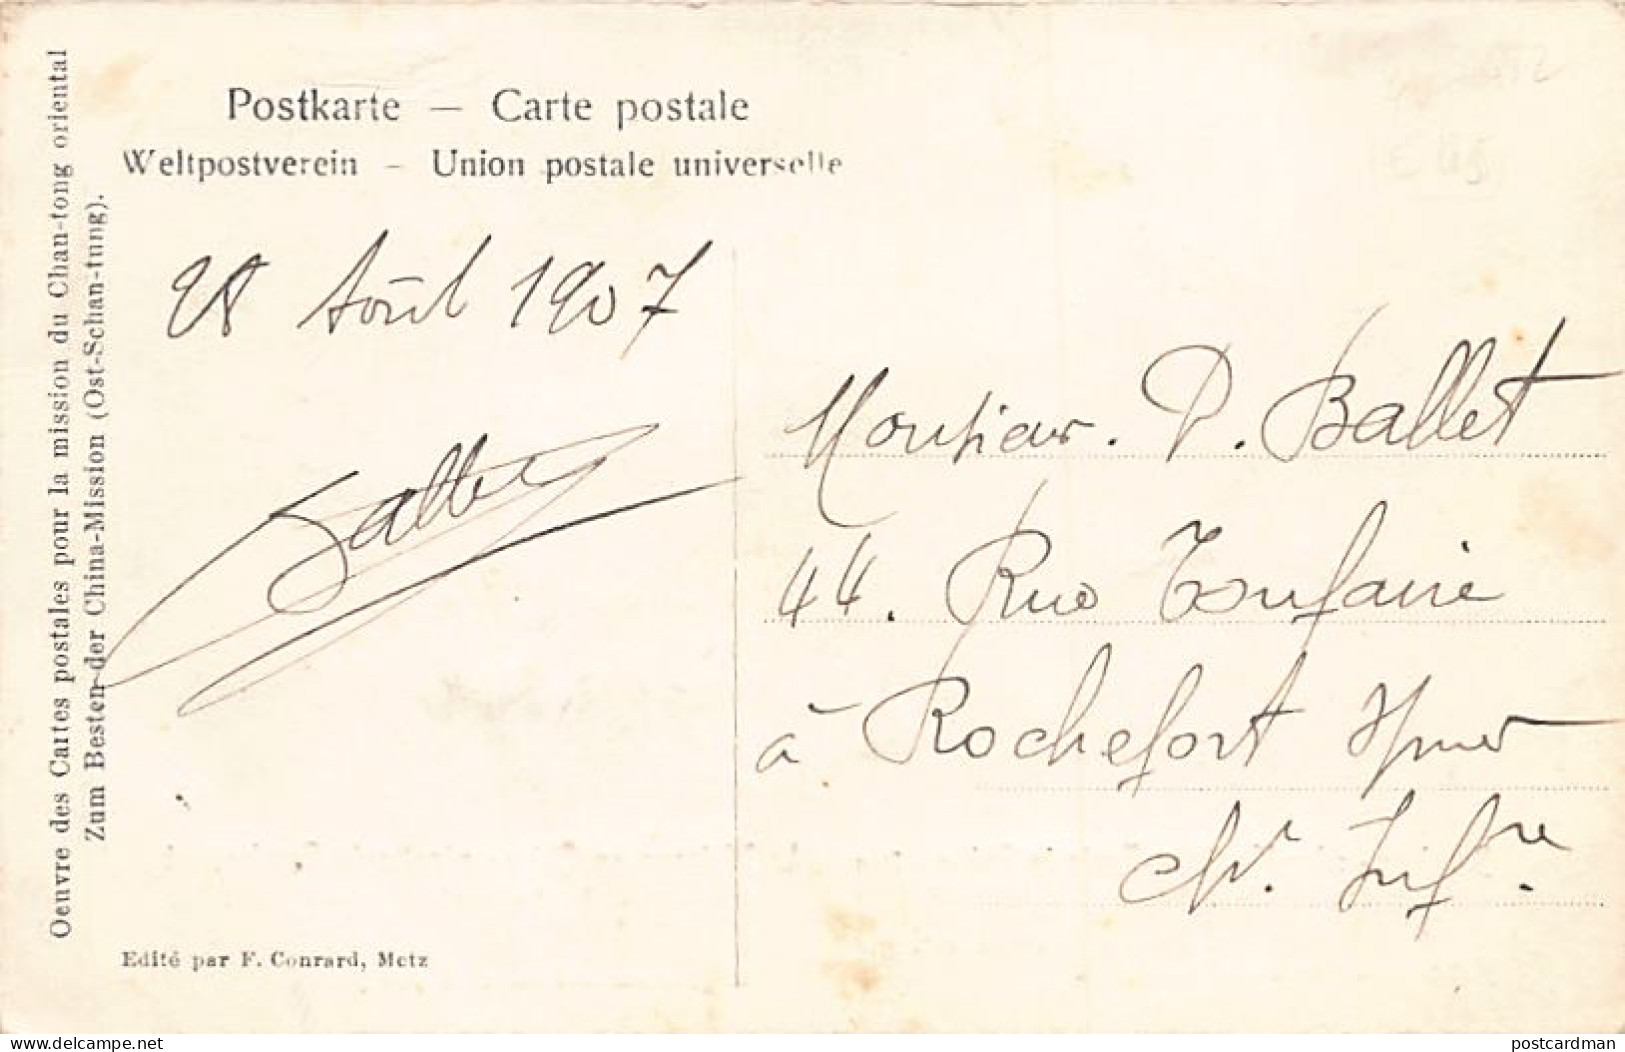 Oeuvre des Cartes postales pour la mission du Chan-tong oriental
Zum Besten der China-Mission (Ost-Schan-tung).
Postkarte — Carte postale
Weltpostverein – Union postale universelle
28 Août 1907
Monsieur. P. Ballet
44. Rue Toufaire
à Rochefort s/mer
chte. Infre.
Edité par F. Conrard, Metz
www.delcampe.net
postcardman